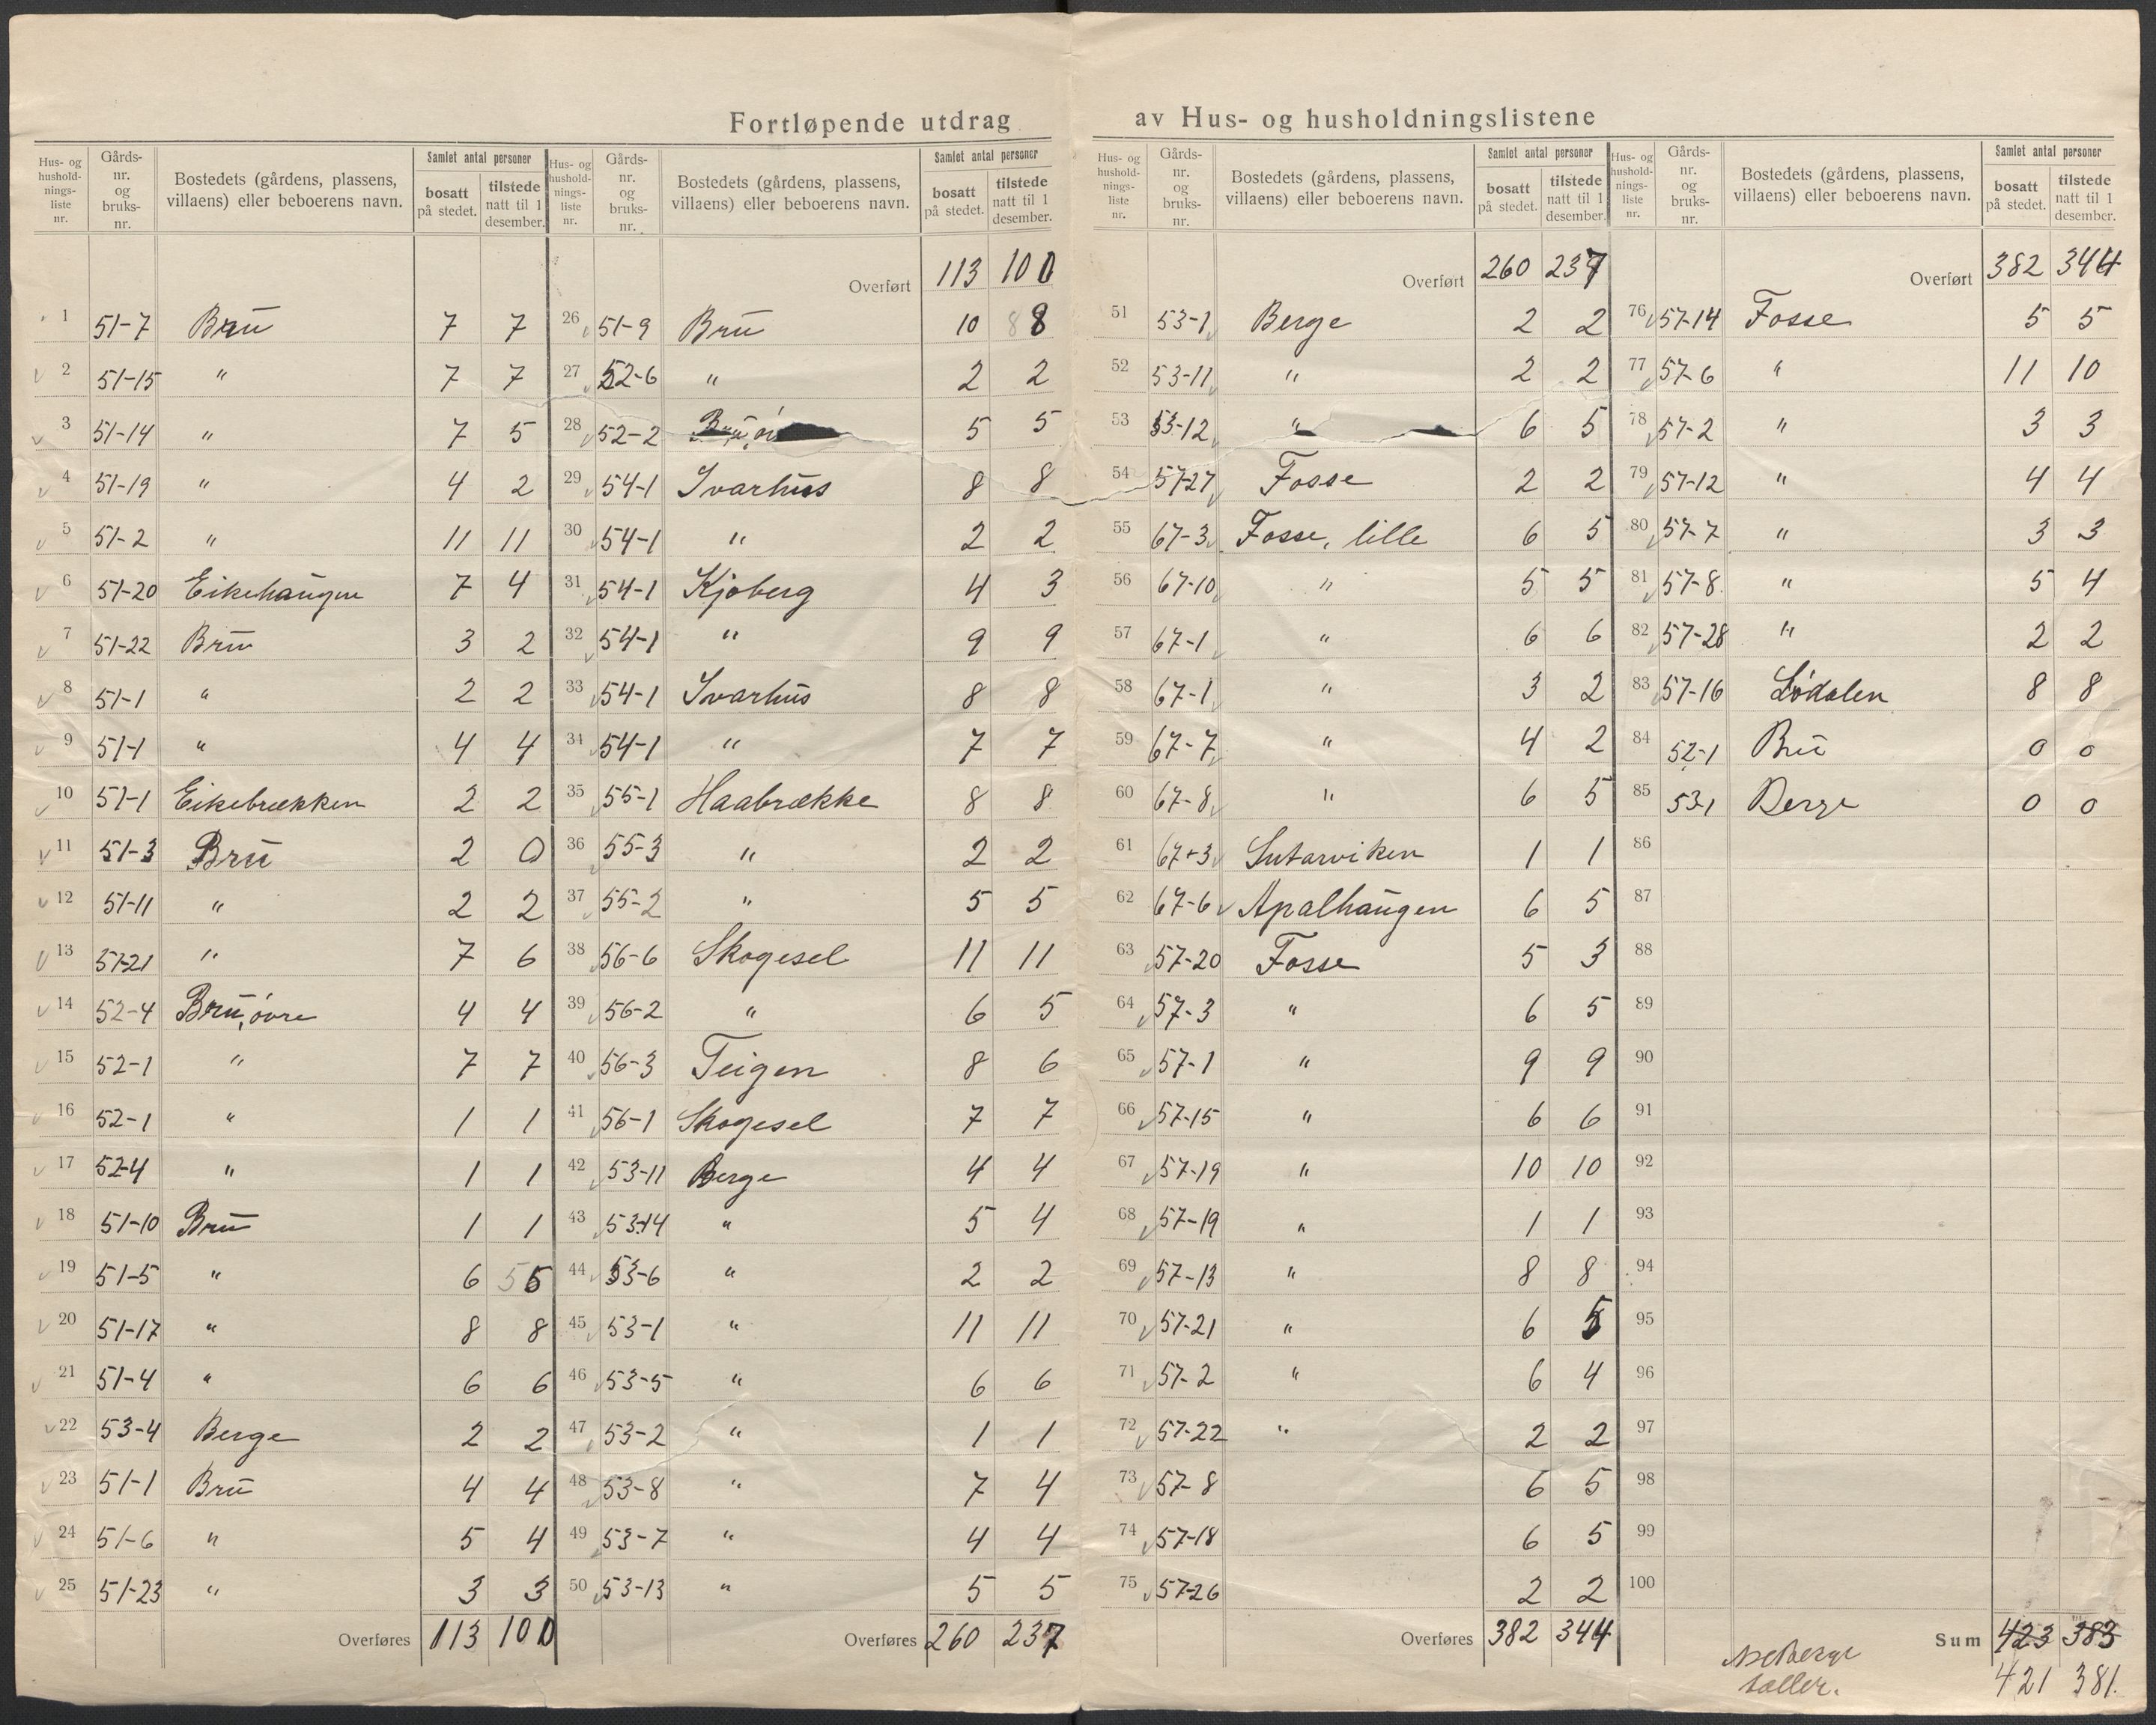 Fortløpende utdrag av Hus- og husholdningslistene
Hus- og hushold-nings-liste nr. Gårds-nr. og bruks-nr. Bostedets (gårdens, plassens, villaens) eller beboerens navn. Samlet antal personer bosatt på stedet. tilstede natt til 1 desember.
1 51-7 Bru 7 7
2 51-15 " 7 7
3 51-14 " 7 5
4 51-19 " 4 2
5 51-2 " 11 11
6 51-20 Eikehaugen 7 4
7 51-22 Bru 3 2
8 51-1 " 2 2
9 51-1 " 4 4
10 51-1 Eikebrækken 2 2
11 51-3 Bru 2 0
12 51-11 " 2 2
13 51-21 " 7 6
14 52-4 Bru, øvre 4 4
15 52-1 " 7 7
16 52-1 " 1 1
17 52-4 " 1 1
18 51-10 Bru 1 1
19 51-5 " 6 5
20 51-17 " 8 8
21 51-4 " 6 6
22 53-4 Berge 2 2
23 51-1 Bru 4 4
24 51-6 " 5 4
25 51-23 " 3 3
Overføres 113 100
Hus- og hushold-nings-liste nr. Gårds-nr. og bruks-nr. Bostedets (gårdens, plassens, villaens) eller beboerens navn. Samlet antal personer bosatt på stedet. tilstede natt til 1 desember.
Overført 113 100
26 51-9 Bru 10 8 8
27 52-6 " 2 2
28 52-2 Bru, 5 5
29 54-1 Ivarhus 8 8
30 54-1 " 2 2
31 54-1 Kjøberg 4 3
32 54-1 " 9 9
33 54-1 Ivarhus 8 8
34 54-1 " 7 7
35 55-1 Haabrække 8 8
36 55-3 " 2 2
37 55-2 " 5 5
38 56-6 Skogesel 11 11
39 56-2 " 6 5
40 56-3 Teigen 8 6
41 56-1 Skogesel 7 7
42 53-11 Berge 4 4
43 53-14 " 5 4
44 53-6 " 2 2
45 53-1 " 11 11
46 53-5 " 6 6
47 53-2 " 1 1
48 53-8 " 7 4
49 53-7 " 4 4
50 53-13 " 5 5
Overføres 260 237
Hus- og hushold-nings-liste nr. Gårds-nr. og bruks-nr. Bostedets (gårdens, plassens, villaens) eller beboerens navn. Samlet antal personer bosatt på stedet. tilstede natt til 1 desember.
Overført 260 237
51 53-1 Berge 2 2
52 53-11 " 2 2
53 53-12 " 6 5
54 57-27 Fosse 2 2
55 67-3 Fosse, lille 6 5
56 67-10 " 5 5
57 67-1 " 6 6
58 67-1 " 3 2
59 67-7 " 4 2
60 67-8 " 6 5
61 67-3 Sutarviken 1 1
62 67-6 Apalhaugen 6 5
63 57-20 Fosse 5 3
64 57-3 " 6 5
65 57-1 " 9 9
66 57-15 " 6 6
67 57-19 " 10 10
68 57-19 " 1 1
69 57-13 " 8 8
70 57-21 " 6 5
71 57-2 " 6 4
72 57-22 " 2 2
73 57-8 6 5
74 57-18 6 5
75 57-26 2 2
Overføres 382 344
Hus- og hushold-nings-liste nr. Gårds-nr. og bruks-nr. Bostedets (gårdens, plassens, villaens) eller beboerens navn. Samlet antal personer bosatt på stedet. tilstede natt til 1 desember.
Overført 382 344
76 57-14 Fosse 5 5
77 57-6 " 11 10
78 57-2 " 3 3
79 57-12 " 4 4
80 57-7 " 3 3
81 57-8 " 5 4
82 57-28 " 2 2
83 57-16 Lødalen 8 8
84 52-1 Bru 0 0
85 53-1 Berge 0 0
86
87
88
89
90
91
92
93
94
95
96
97
98
99
100
Sum 423 383
tæller. 421 381.